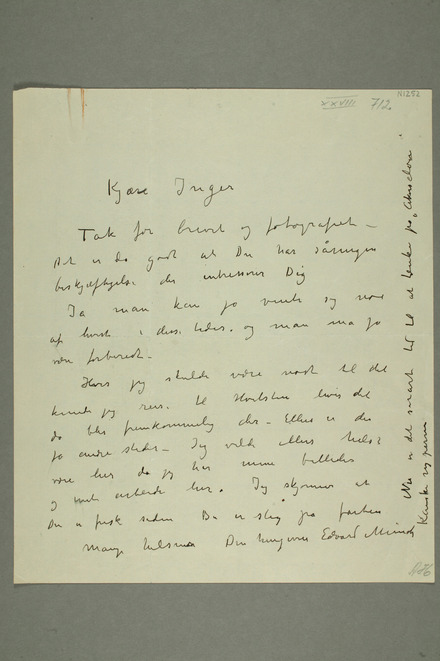 N1252
XXVIII 712.
Kjære Inger
Tak for brevet og fotografiet –
Det er da godt at Du har såmegen
beskjæftigelse der intresserer Dig
Ja man kan jo vente sig noe
af hvert i disse tider. og man må jo
være forberedt –
Hvis jeg skulde være nødt til det
kunde jeg reise til Hvitsten hvis det
da blir fremkommelig der – Ellers er der
jo andre steder – Jeg vilde ellers helst
være her da jeg har mine billeder
og mit arbeide her. Jeg skjønner at
Du er frisk siden Du er slig på farten
Mange hilsener Din hengivne Edvard Munch
Nu er det snart tid til at tænke på
Kanske og